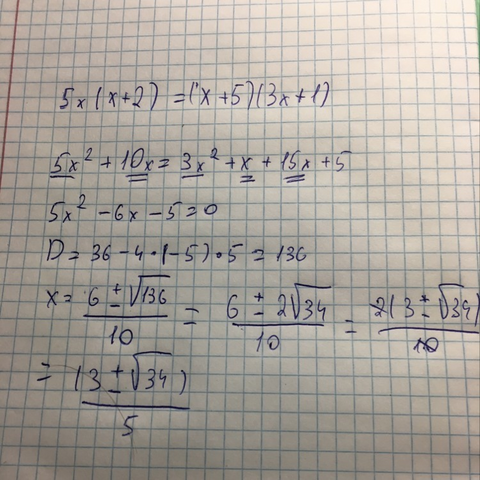 5x(x+2) = (x+5)(3x+1)
5x² + 10x = 3x² + x + 15x + 5
5x² - 6x - 5 = 0
D = 36 - 4·(-5)·5 = 136
x = (6 ± √136)/10 = (6 ± 2√34)/10 = 2(3 ± √34)/10
= (3 ± √34)/5